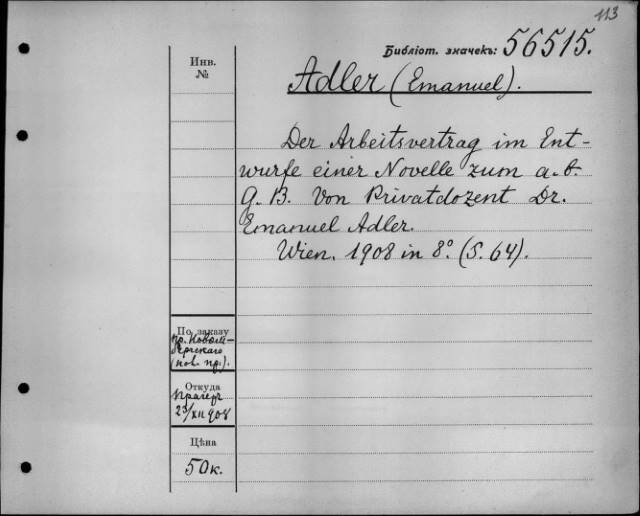 113
Библіот. значекъ: 56515.
Инв.
№
Adler (Emanuel).
Der Arbeitsvertrag im Ent-
wurfe einer Novelle zum a. b.
G. B. Von Privatdozent Dr.
Emanuel Adler.
Wien. 1908 in 8º. (S. 64).
По заказу
пр.
(нов. пр.).
Откуда
Прагеръ
23/XII 908
Цѣна
50 к.